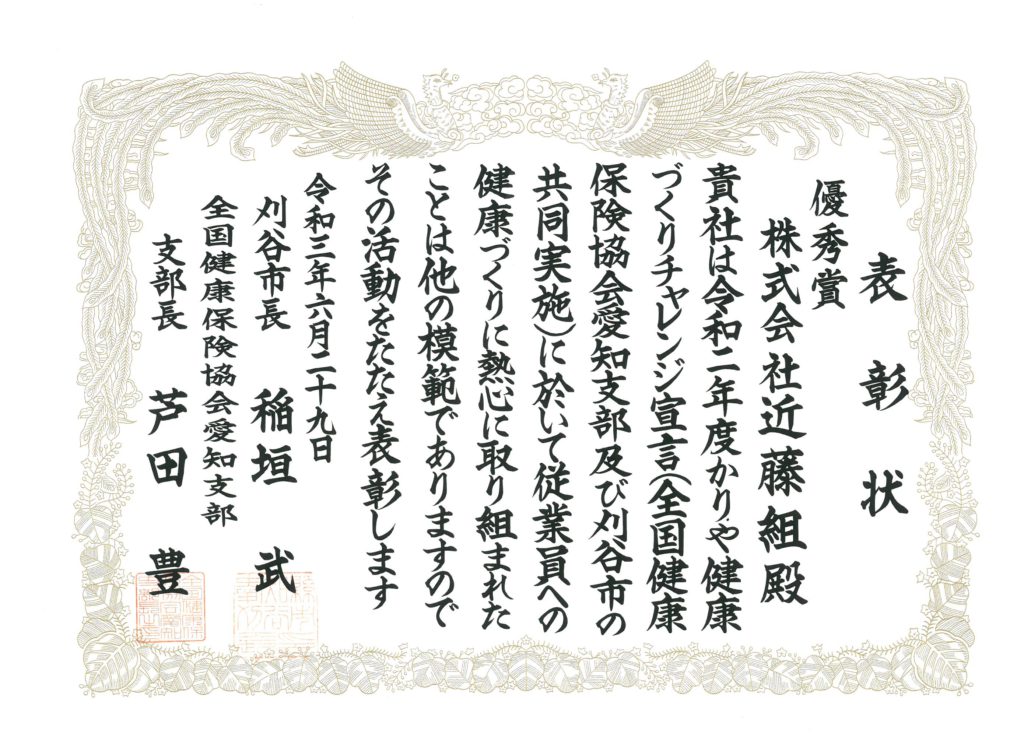 表彰状
優秀賞
株式会社近藤組殿
貴社は令和二年度かりや健康
づくりチャレンジ宣言(全国健康
保険協会愛知支部及び刈谷市の
共同実施)に於いて従業員への
健康づくりに熱心に取り組まれた
ことは他の模範でありますので
その活動をたたえ表彰します
令和三年六月二十九日
刈谷市長 稲垣 武
全国健康保険協会愛知支部
支部長 芦田 豊